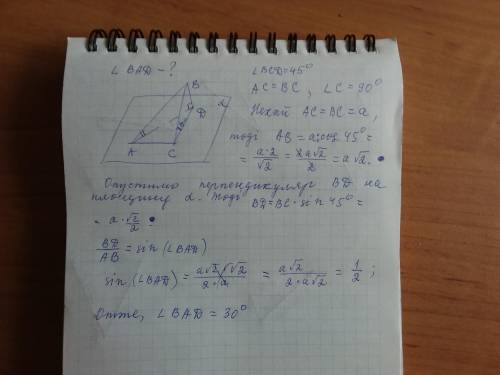 ∠BAD - ?
∠BCD = 45°
AC = BC, ∠C = 90°
Нехай AC = BC = a,
тоді AB = a : cos 45° =
= a·2/√2 = 2a√2/2 = a√2.
B
α
D
A
C
Опустимо перпендикуляр BD на
площину α. Тоді BD = BC · sin 45° =
= a · √2/2.
BD/AB = sin (∠BAD)
sin (∠BAD) = = a√2/2·a√2 = 1/2 ;
Отже, ∠BAD = 30°